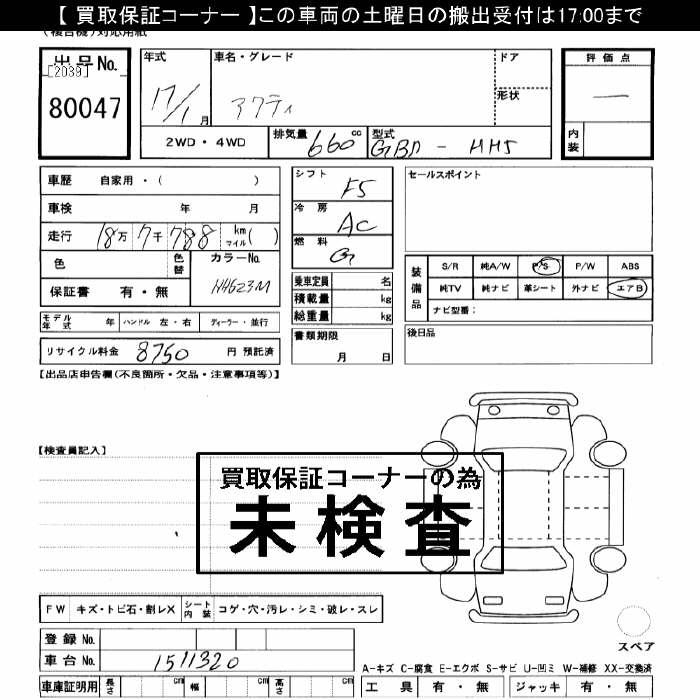 【 買取保証コーナー 】この車両の土曜日の搬出受付は17:00まで
(複合機)対応用紙
出品No.
[2039]
80047
年式
17/1 月
車名・グレード
アクティ
ドア
形状
評価点
一
内装
2WD・4WD
排気量 660 cc
型式 GBD - HH5
車歴 自家用・( )
車検 年 月
走行 18万 7千 788 km マイル ( )
色
色替
カラーNo.
NH623M
保証書 有・無
シフト F5
冷房 AC
燃料 G
乗車定員 名
積載量 kg
総重量 kg
セールスポイント
装備品
S/R 純A/W P/S P/W ABS
純TV 純ナビ 革シート 外ナビ エアB
ナビ型番:
モデル年式 年 ハンドル 左・右 ディーラー・並行
書類期限
月 日
後日品
リサイクル料金 8750 円 預託済
【出品店申告欄(不良箇所・欠品・注意事項等)】
【検査員記入】
買取保証コーナーの為
未検査
FW キズ・トビ石・割レX シート内装 コゲ・穴・汚レ・シミ・破レ・スレ
登録No.
車台No. 1511320
スペア
A-キズ C-腐食 E-エクボ S-サビ U-凹ミ W-補修 XX-交換済
車庫証明用 長さ cm 幅 cm 高さ cm
工具 有・無 ジャッキ 有・無